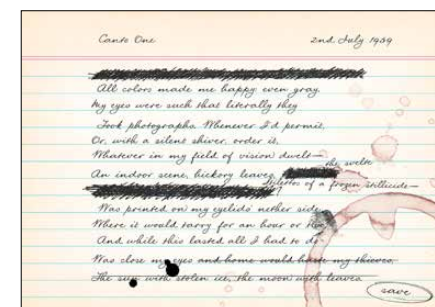 Canto One 2nd July 1959
All colors made me happy even gray.
My eyes were such that literally they
Took photographs. Whenever I'd permit,
Or, with a silent shiver, order it,
Whatever in my field of vision dwelt—
An indoor scene, hickory leaves, the svelte
Stilettos of a frozen stillicide—
Was printed on my eyelids' nether side
Where it would tarry for an hour or two,
And while this lasted all I had to do
Was close my eyes and home would haste my thieves.
The sun with stolen ice, the moon with leaves.
save